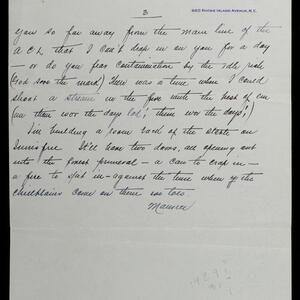 3
1820 RHODE ISLAND AVENUE, N.E.
you so far away from the main line of the
A.C.L. that I can't drop in on you for a day
— or do you fear contamination by the idle rich
(God save the mark) There was a time when I could
shoot a stream in the fire with the best of em
(an them wor the days lad; them wor the days!)
I'm building a room back of the estate on
Innisfree. It'll have two doors, all opening out
into the forest primeval — a can to crap in —
a fire to spit in — against the time when of the
chieftains come an there too told.
Maurice